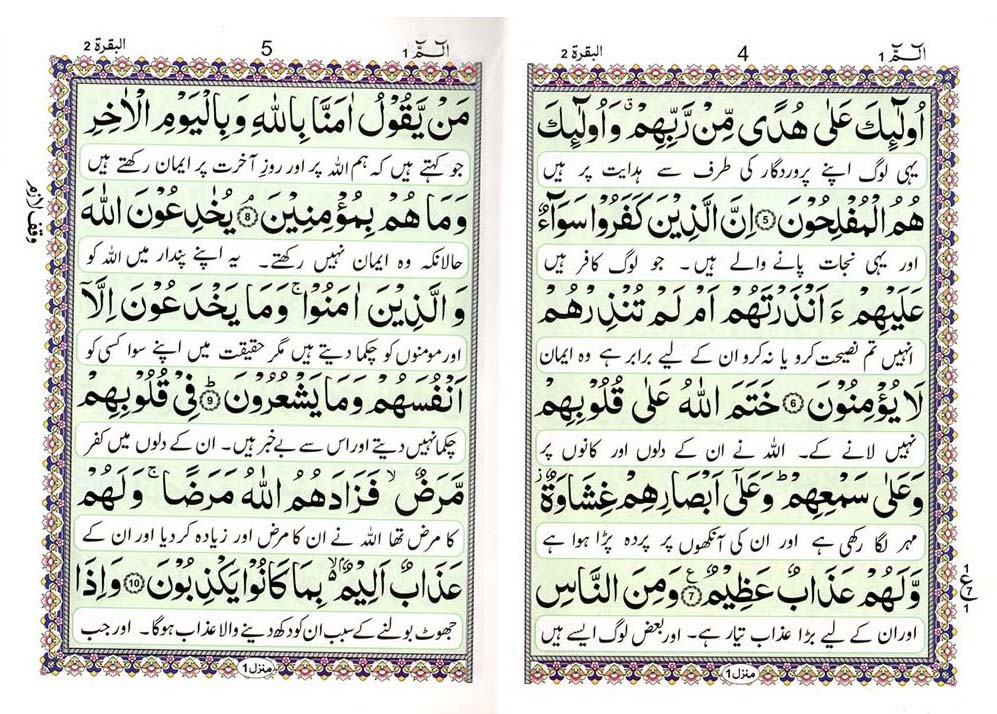 الٓمّٓ 1
4
البقرة 2
اُولٰٓئِكَ عَلٰى هُدًى مِّنْ رَّبِّهِمْ ۗ وَاُولٰٓئِكَ
یہی لوگ اپنے پروردگار کی طرف سے ہدایت پر ہیں
هُمُ الْمُفْلِحُوْنَ ۝5 اِنَّ الَّذِيْنَ كَفَرُوْا سَوَآءٌ
اور یہی نجات پانے والے ہیں۔ جو لوگ کافر ہیں
عَلَيْهِمْ ءَاَنْذَرْتَهُمْ اَمْ لَمْ تُنْذِرْهُمْ
انہیں تم نصیحت کرو یا نہ کرو ان کے لیے برابر ہے وہ ایمان
لَا يُؤْمِنُوْنَ ۝6 خَتَمَ اللّٰهُ عَلٰى قُلُوْبِهِمْ
نہیں لانے کے۔ اللہ نے ان کے دلوں اور کانوں پر
وَعَلٰى سَمْعِهِمْ ؕ وَعَلٰٓى اَبْصَارِهِمْ غِشَاوَةٌ ز
مہر لگا رکھی ہے اور ان کی آنکھوں پر پردہ پڑا ہوا ہے
وَّلَهُمْ عَذَابٌ عَظِيْمٌ ۝7 ع وَمِنَ النَّاسِ
اور ان کے لیے بڑا عذاب تیار ہے۔ اور بعض لوگ ایسے ہیں
1
ع 7
1
منزل 1
الٓمّٓ 1
5
البقرة 2
مَنْ يَّقُوْلُ اٰمَنَّا بِاللّٰهِ وَبِالْيَوْمِ الْاٰخِرِ
جو کہتے ہیں کہ ہم اللہ پر اور روزِ آخرت پر ایمان رکھتے ہیں
وَمَا هُمْ بِمُؤْمِنِيْنَ ۝8 م يُخٰدِعُوْنَ اللّٰهَ
حالانکہ وہ ایمان نہیں رکھتے۔ یہ اپنے پندار میں اللہ کو
وَالَّذِيْنَ اٰمَنُوْا ۚ وَمَا يَخْدَعُوْنَ اِلَّآ
اور مومنوں کو چکما دیتے ہیں مگر حقیقت میں اپنے سوا کسی کو
اَنْفُسَهُمْ وَمَا يَشْعُرُوْنَ ۝9 ؕ فِيْ قُلُوْبِهِمْ
چکما نہیں دیتے اور اس سے بےخبر ہیں۔ ان کے دلوں میں کفر
مَّرَضٌ ۙ فَزَادَهُمُ اللّٰهُ مَرَضًا ۚ وَلَهُمْ
کا مرض تھا اللہ نے ان کا مرض اور زیادہ کر دیا اور ان کے
عَذَابٌ اَلِيْمٌ ۙ بِمَا كَانُوْا يَكْذِبُوْنَ ۝10 وَاِذَا
جھوٹ بولنے کے سبب ان کو دکھ دینے والا عذاب ہوگا۔ اور جب
وقف لازم
منزل 1